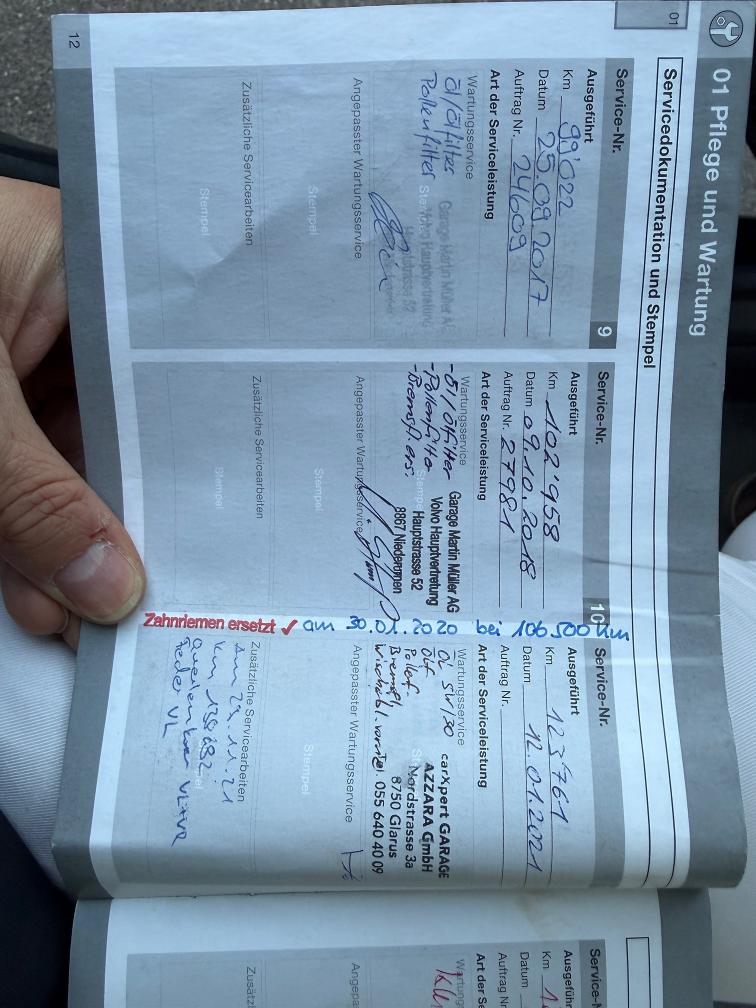 01 Pflege und Wartung
01
Servicedokumentation und Stempel
Service-Nr. 9
Ausgeführt
Km 99'022
Datum 25.09.2017
Auftrag Nr. 24609
Art der Serviceleistung
Wartungsservice
Öl/Ölfilter
Pollenfilter
Garage Martin Müller AG
Volvo Hauptvertretung
Hauptstrasse 52
Angepasster Wartungsservice
Stempel
Zusätzliche Servicearbeiten
Stempel
12
Service-Nr. 10
Ausgeführt
Km 102'958
Datum 09.10.2018
Auftrag Nr. 27981
Art der Serviceleistung
Wartungsservice
-Öl/Ölfilter
-Pollenfilter
-Bremsfl. ers.
Garage Martin Müller AG
Volvo Hauptvertretung
Hauptstrasse 52
8867 Niederurnen
Angepasster Wartungsservice
Stempel
Zusätzliche Servicearbeiten
Stempel
Zahnriemen ersetzt ✓ am 30.01.2020 bei 106500 km
Service-Nr.
Ausgeführt
Km 123761
Datum 12.01.2021
Auftrag Nr.
Art der Serviceleistung
Wartungsservice
ÖL 5W/30
Ölf
Pollenf.
Bremsfl.
carXpert GARAGE
AZZARA GmbH
Nordstrasse 3a
8750 Glarus
055 640 40 09
Angepasster Wartungsservice
Stempel
Zusätzliche Servicearbeiten
Km
Querlenker VL+VR
Feder VL
Ausgeführt
Km
Datum
Auftrag Nr